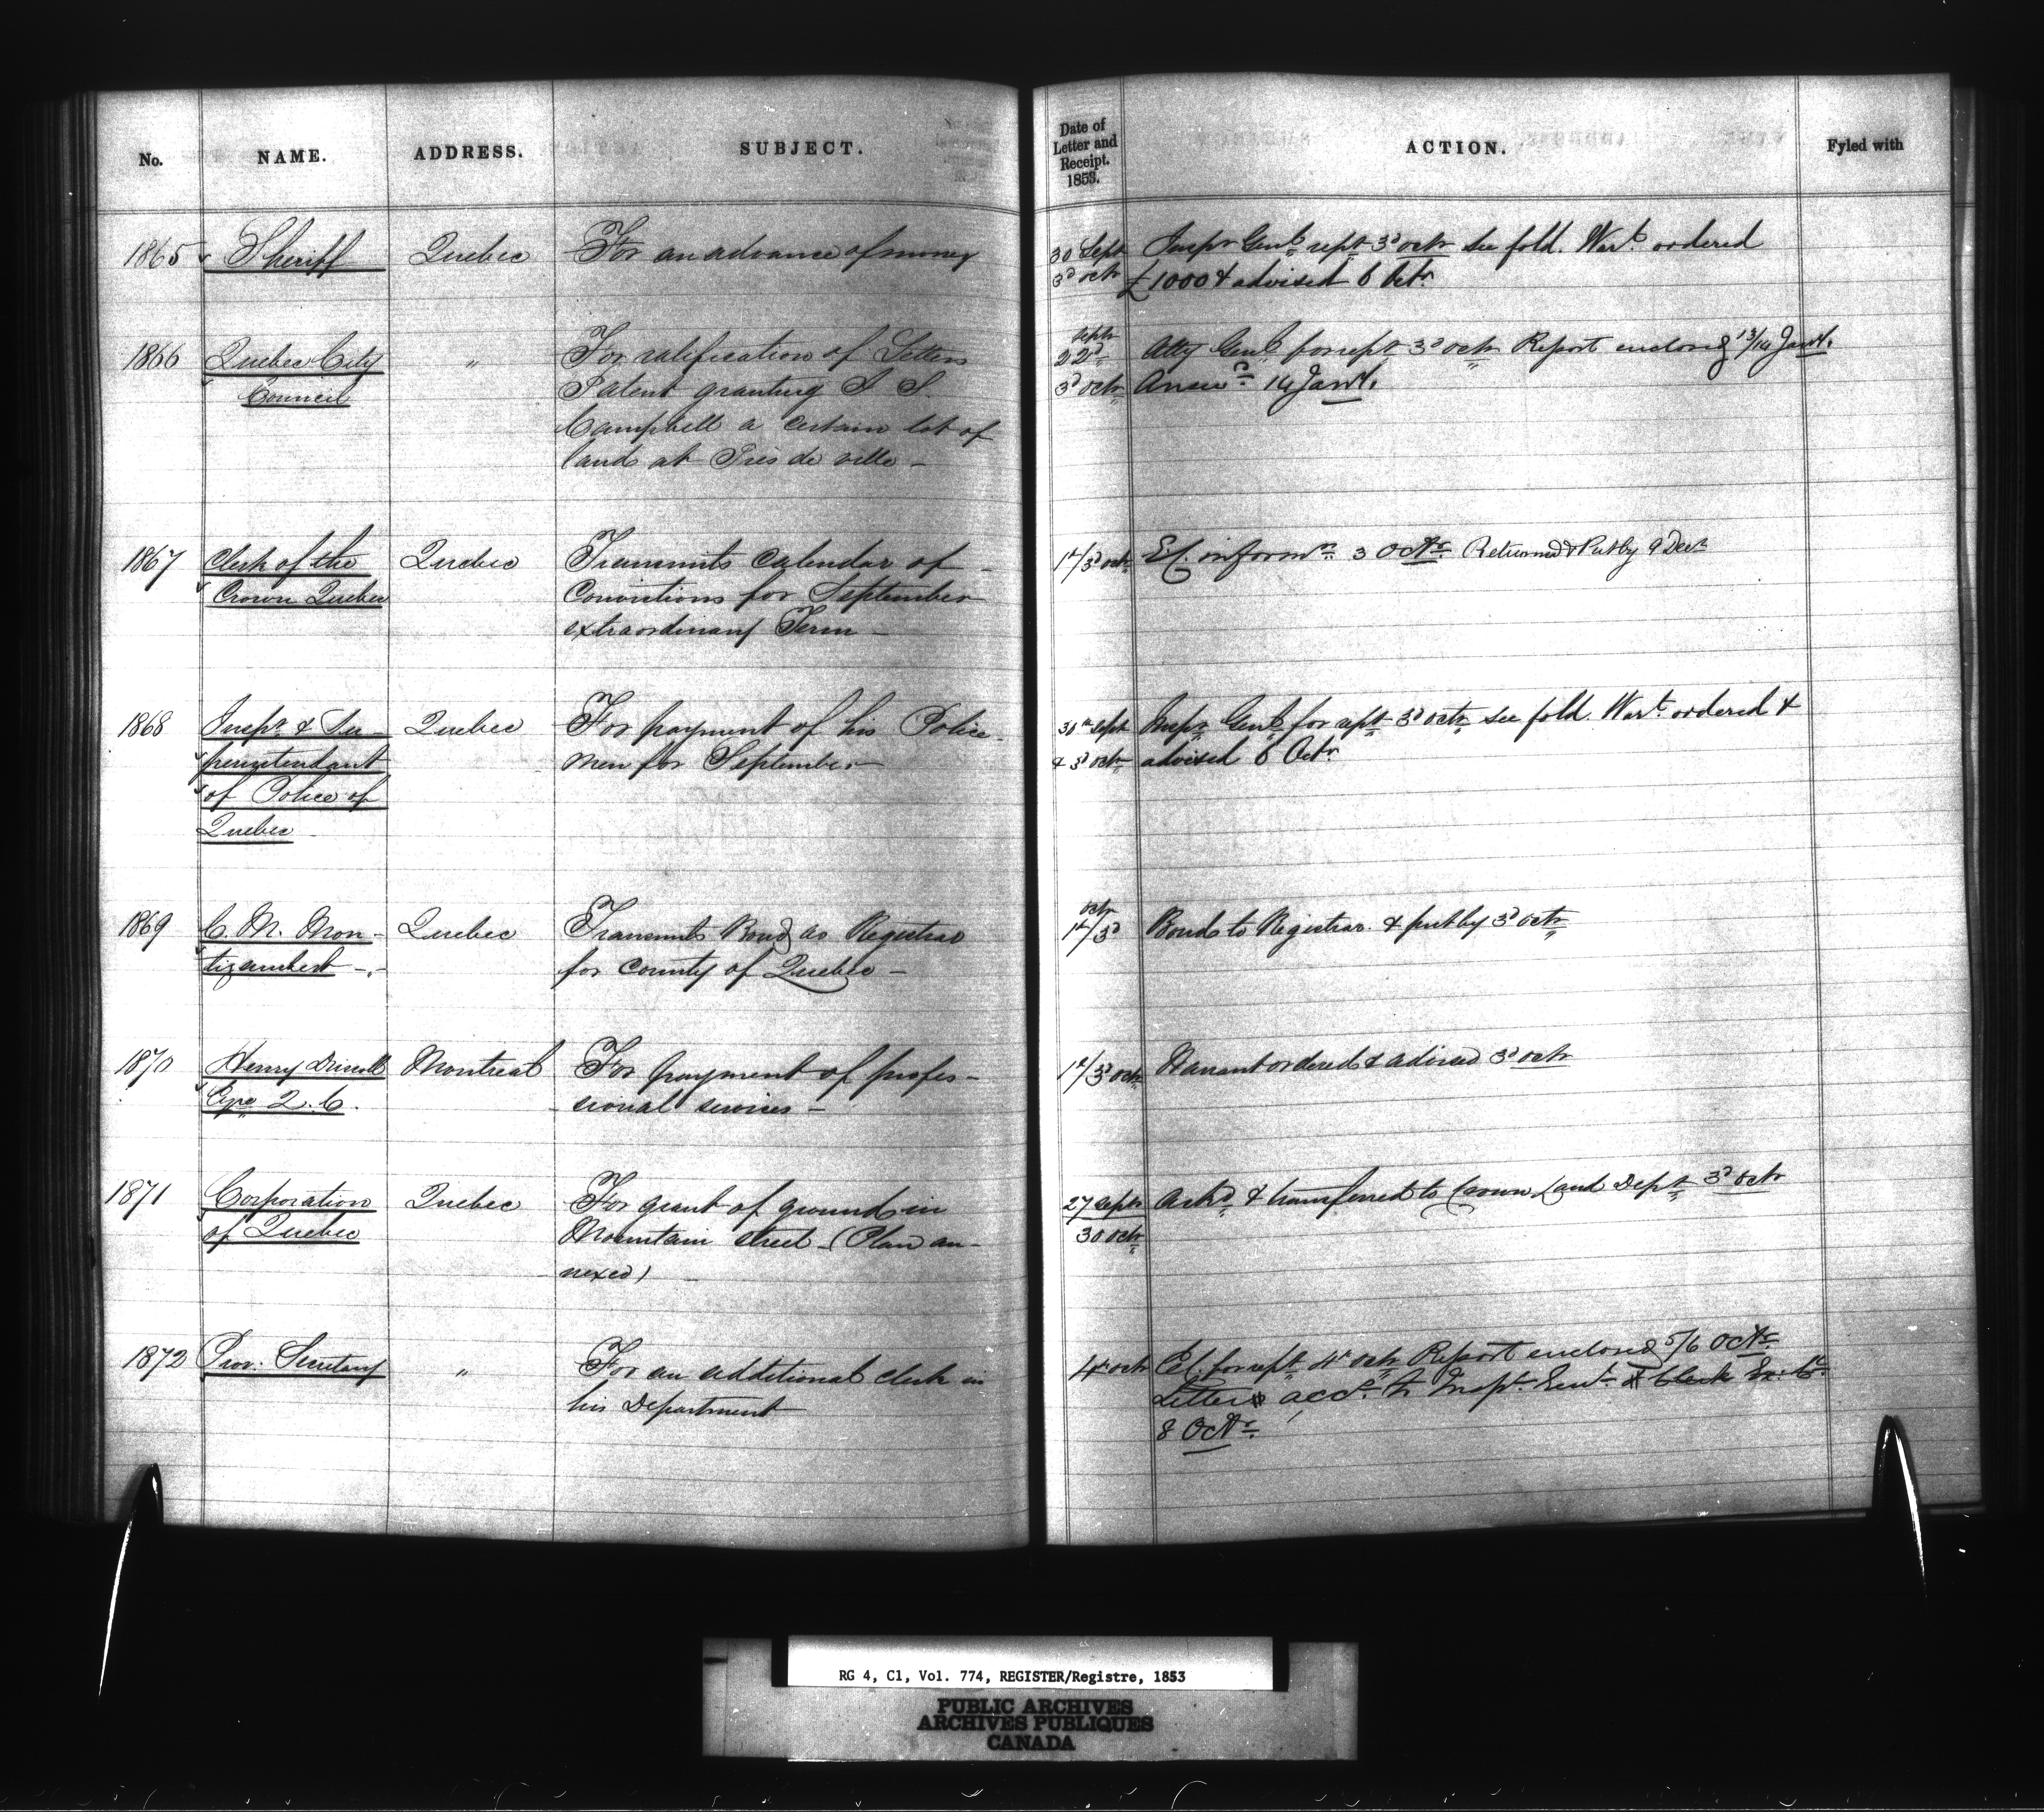 No. NAME. ADDRESS. SUBJECT.
Date of Letter and Receipt. 1853. ACTION. Fyled with
1865 Sheriff Quebec For an advance of money
30 Sept Inspr Genl rept 3d octr see fold. Wart ordered
3d octr £1000 & advised 6 Octr
1866 Quebec City " For ratification of Letters
Council Patent granting
Campbell a certain lot of
land at Près de ville -
Septr 22d Atty Genl for rept 3d octr Report enclosed 13/14 Jany.
3d octr Answd 14 Jany.
1867 Clerk of the Quebec Transmits Calendar of
Crown Quebec Convictions for September
extraordinary Term -
1st/3d octr informn 3 Octr Returned & Put by 9 Decr
1868 Inspr & Su- Quebec For payment of his Police-
perintendant men for September -
of Police of
Quebec
30th Sept Inspr Genl for rept 3d octr see fold. Wart ordered &
& 3d octr advised 6 Octr
1869 C. N. Mon- Quebec Transmits Bond as Registrar
tizambert -.- for County of Quebec -
octr 1st/3d Bond to Registrar & put by 3d octr
1870 Henry Driscoll Montreal For payment of profes-
Esqre Q. C. sional services -
1st/3d octr Warrant ordered & advised 3d octr
1871 Corporation Quebec For grant of ground in
of Quebec Mountain street - (Plan an-
nexed)
27 Septr Ackd & transferred to Crown Land Dept 3d octr
30 octr
1872 Prov. Secretary " For an additional clerk in
his Department
4th octr for rept 4th octr Report enclosed 5/6 Octr
Letter accg to Inspr Genl & Clerk Ex. C.
8 Octr
RG 4, C1, Vol. 774, REGISTER/Registre, 1853
PUBLIC ARCHIVES
ARCHIVES PUBLIQUES
CANADA